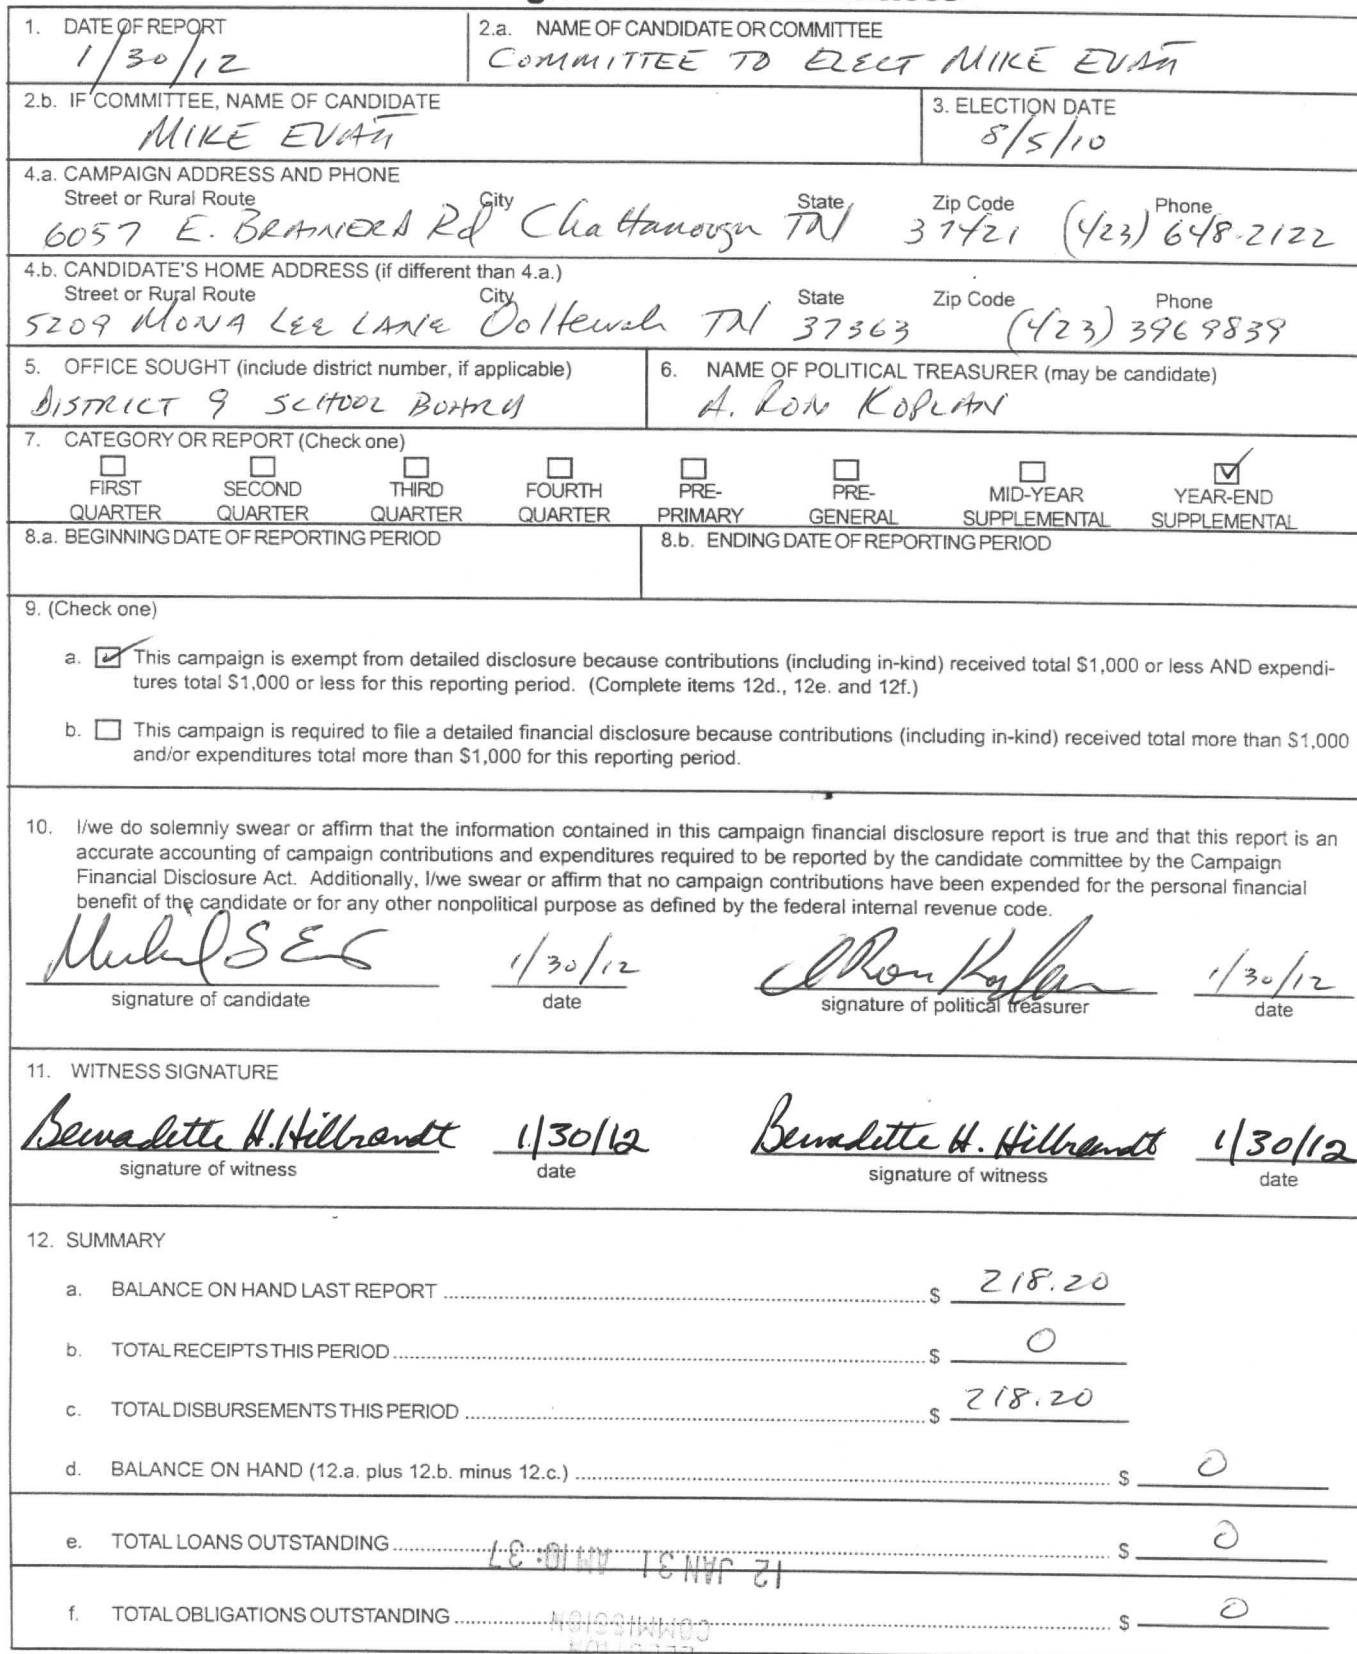 1. DATE OF REPORT
1/30/12
2.a. NAME OF CANDIDATE OR COMMITTEE
COMMITTEE TO ELECT MIKE EVATT
2.b. IF COMMITTEE, NAME OF CANDIDATE
MIKE EVATT
3. ELECTION DATE
8/5/10
4.a. CAMPAIGN ADDRESS AND PHONE
Street or Rural Route City State Zip Code Phone
6057 E. BRAINERD Rd Chattanooga TN 37421 (423) 648-2122
4.b. CANDIDATE'S HOME ADDRESS (if different than 4.a.)
Street or Rural Route City State Zip Code Phone
5209 MONA LEE LANE Ooltewah TN 37363 (423) 396 9839
5. OFFICE SOUGHT (include district number, if applicable)
DISTRICT 9 SCHOOL BOARD
6. NAME OF POLITICAL TREASURER (may be candidate)
A. RON KOPLAN
7. CATEGORY OR REPORT (Check one)
FIRST QUARTER
SECOND QUARTER
THIRD QUARTER
FOURTH QUARTER
PRE-PRIMARY
PRE-GENERAL
MID-YEAR SUPPLEMENTAL
YEAR-END SUPPLEMENTAL
8.a. BEGINNING DATE OF REPORTING PERIOD
8.b. ENDING DATE OF REPORTING PERIOD
9. (Check one)
a. This campaign is exempt from detailed disclosure because contributions (including in-kind) received total $1,000 or less AND expendi-
tures total $1,000 or less for this reporting period. (Complete items 12d., 12e. and 12f.)
b. This campaign is required to file a detailed financial disclosure because contributions (including in-kind) received total more than $1,000
and/or expenditures total more than $1,000 for this reporting period.
10. I/we do solemnly swear or affirm that the information contained in this campaign financial disclosure report is true and that this report is an
accurate accounting of campaign contributions and expenditures required to be reported by the candidate committee by the Campaign
Financial Disclosure Act. Additionally, I/we swear or affirm that no campaign contributions have been expended for the personal financial
benefit of the candidate or for any other nonpolitical purpose as defined by the federal internal revenue code.
1/30/12 A Ron Koplan 1/30/12
signature of candidate date signature of political treasurer date
11. WITNESS SIGNATURE
Bernadette H. Hillbrandt 1/30/12 Bernadette H. Hillbrandt 1/30/12
signature of witness date signature of witness date
12. SUMMARY
a. BALANCE ON HAND LAST REPORT $ 218.20
b. TOTAL RECEIPTS THIS PERIOD $ 0
c. TOTAL DISBURSEMENTS THIS PERIOD $ 218.20
d. BALANCE ON HAND (12.a. plus 12.b. minus 12.c.) $ 0
e. TOTAL LOANS OUTSTANDING $ 0
12 JAN 31 AM 10: 37
f. TOTAL OBLIGATIONS OUTSTANDING $ 0
COMMISSION
ELECTION